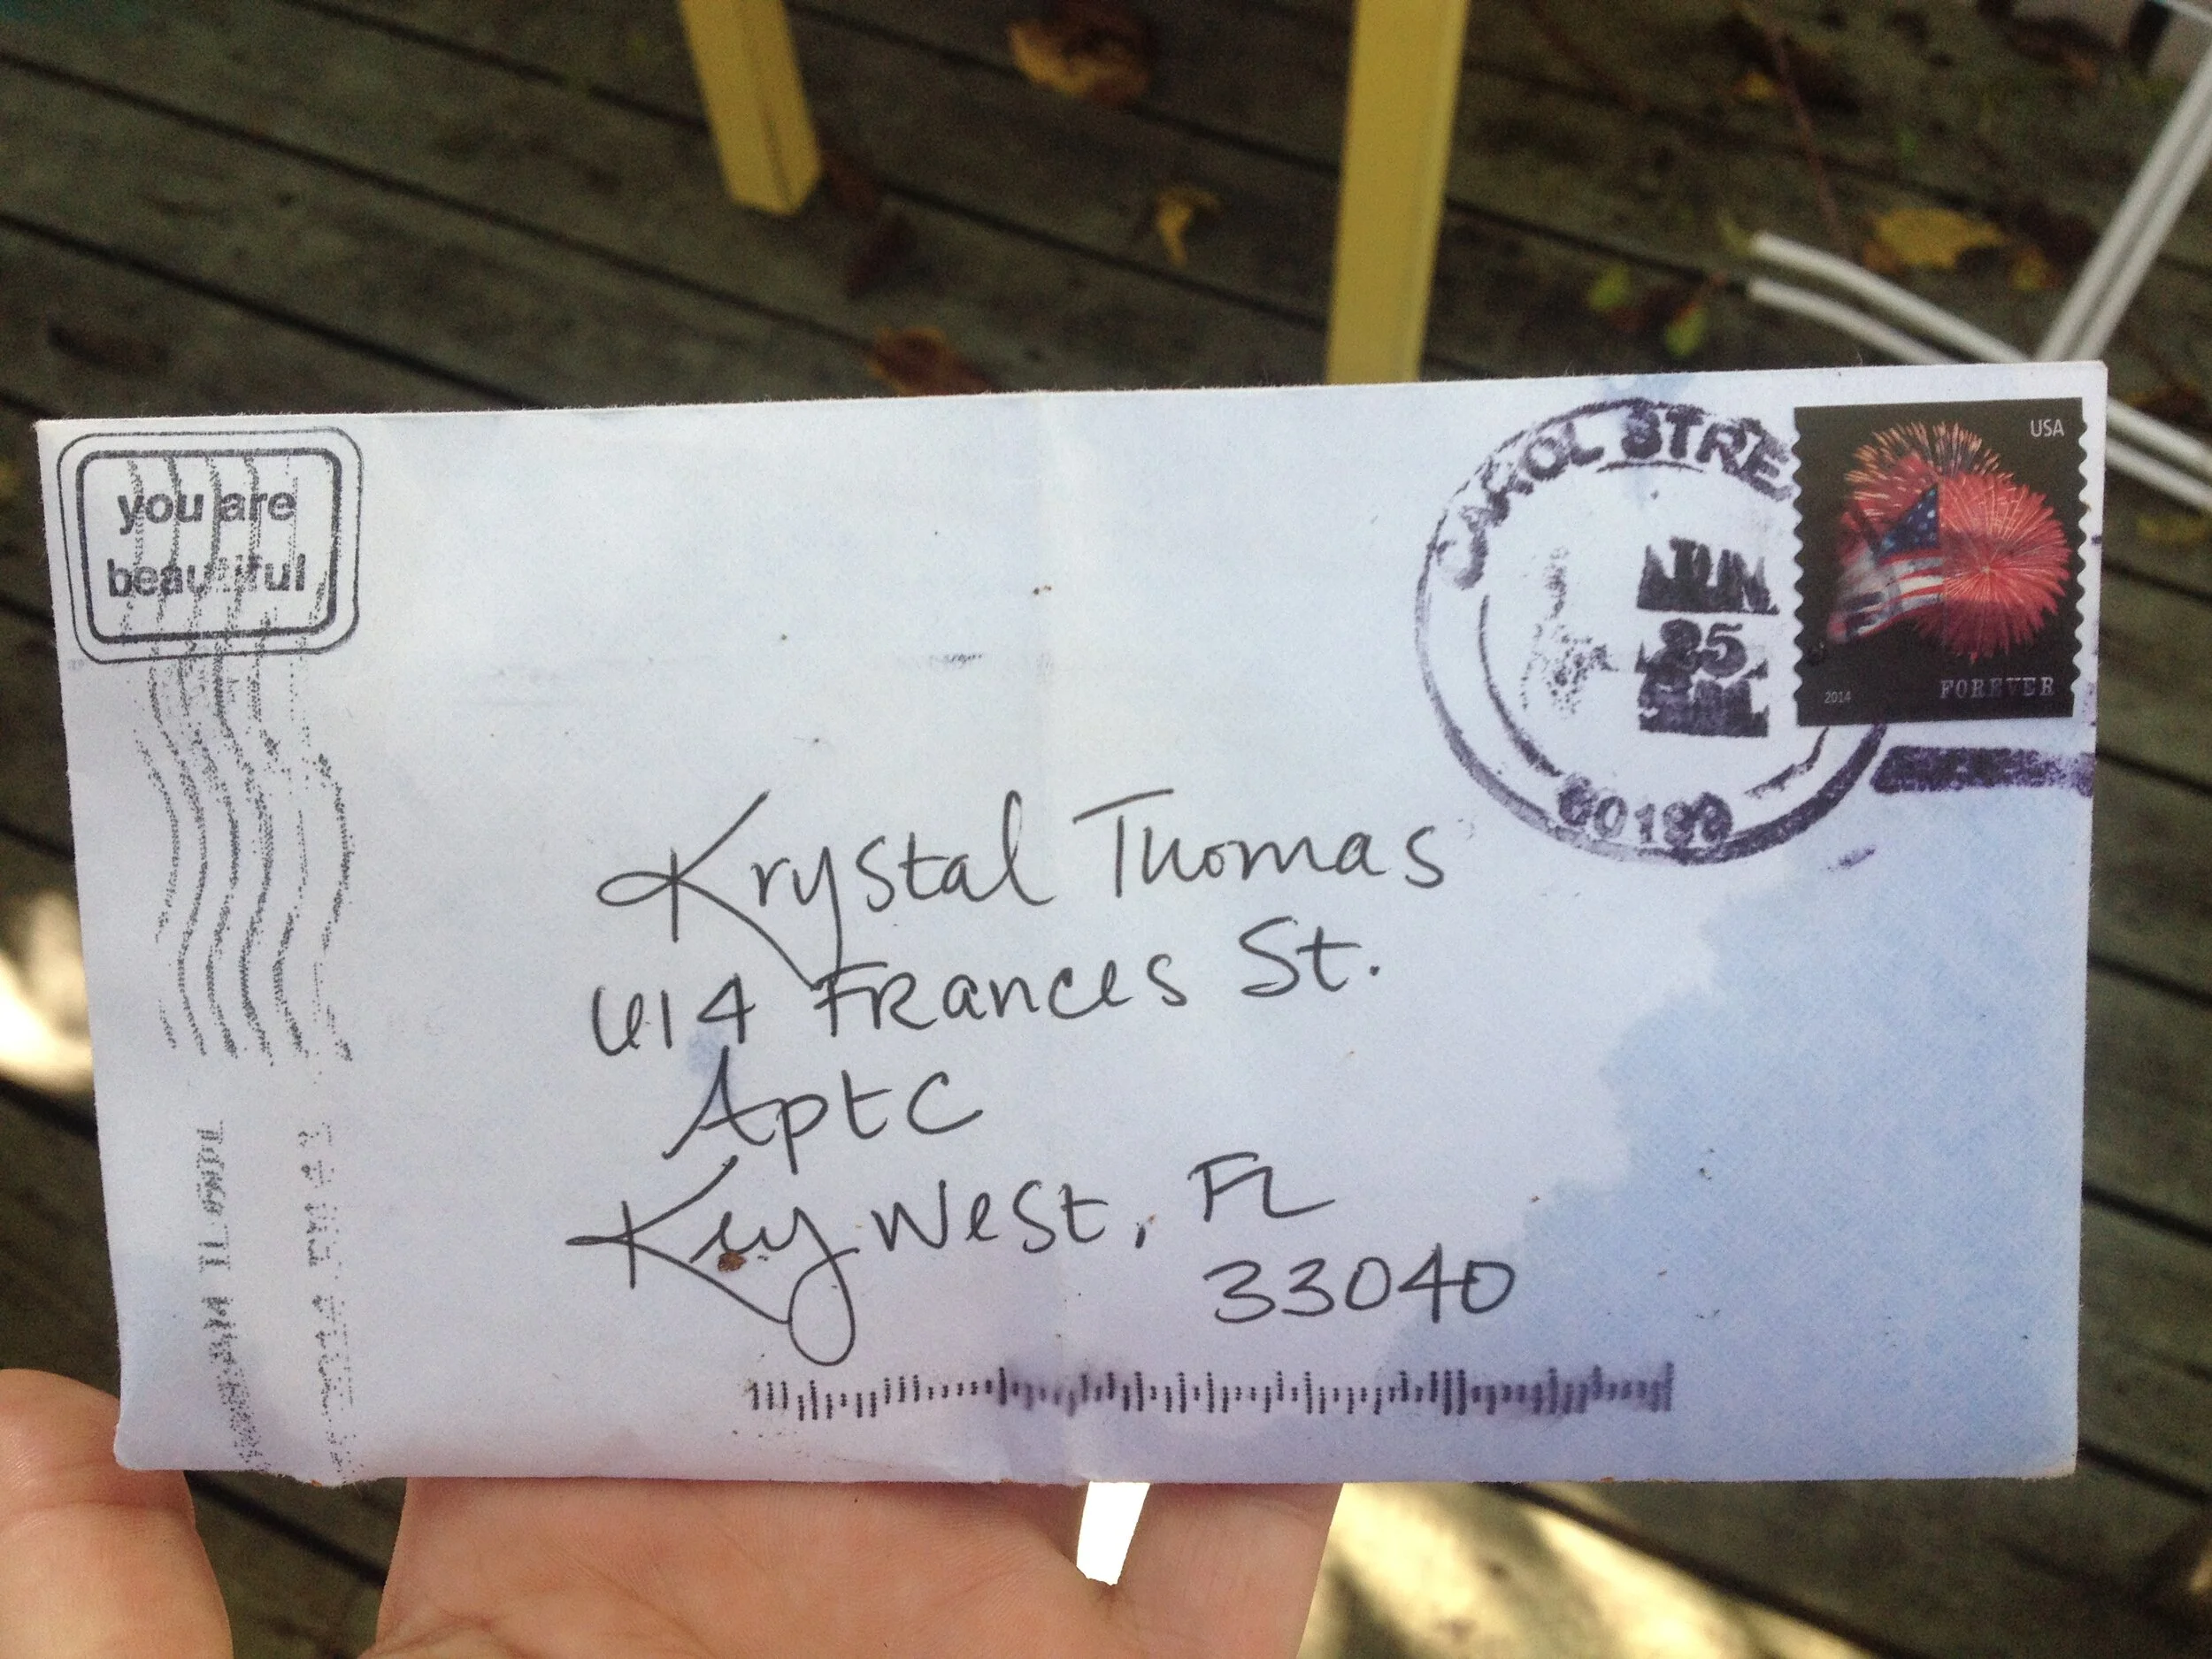 you are
beautiful
CAROL STRE
JUN
25
USA
2014
FOREVER
Krystal Thomas
614 Frances St.
Apt C
Key West, FL
33040